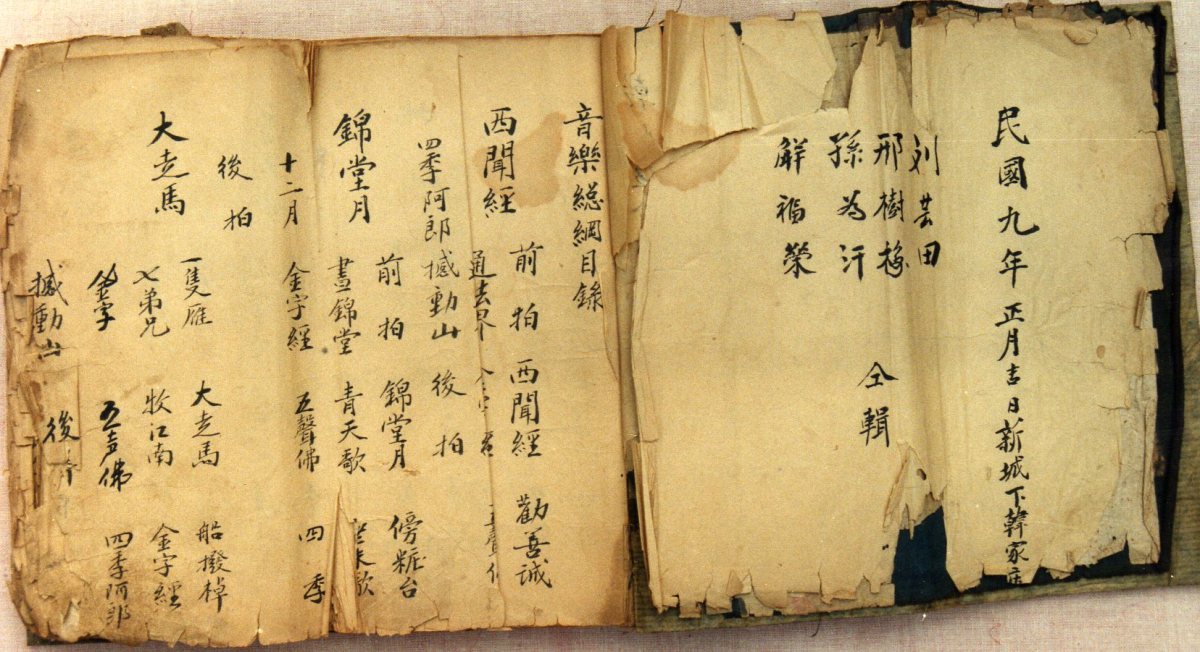 民國九年正月吉日新城下韓家庄
刘芸田
邢樹梅
孫為汗
解福榮
仝輯
音樂総綱目錄
西聞經 前拍 西聞經 勸善誠
通去界 金字經 五聲佛
四季阿郎 撼動山 後拍
錦堂月 前拍 錦堂月 傍粧台
晝錦堂 青天歌
十二月 金字經 五聲佛 四季
後拍
大走馬 一隻雁 大走馬 船撥棹
七弟兄 牧江南 金字經
金字 五声佛 四季阿郎
撼動山 後